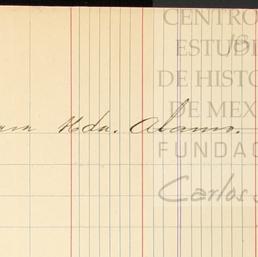 CENTRO
ESTUDI
DE HISTO
DE MEX
Hda. Alamo.
FUNDAC
Carlos